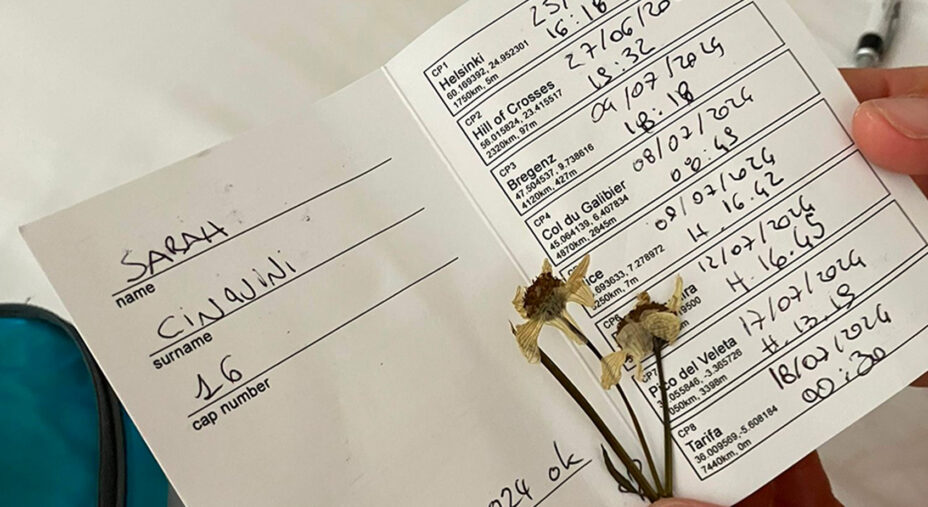 SARAH
name
CINQUINI
surname
16
cap number
024 ok
CP1
Helsinki
60.169392, 24.952301
1750km, 5m
16:18
CP2
Hill of Crosses
56.015824, 23.415517
2320km, 97m
27/06/20
18:32
CP3
Bregenz
47.504537, 9.738616
4120km, 427m
04/07/2024
18:18
CP4
Col du Galibier
45.064139, 6.407834
4870km, 2645m
08/07/2024
00:43
ice
.693633, 7.278972
5250km, 7m
08/07/2024
H. 16.42
CP6
ira
19500
12/07/2024
H. 16.45
CP7
Pico del Veleta
055846, -3.365726
050km, 3398m
17/07/2024
H. 13.19
CP8
Tarifa
36.009569,-5.608184
7440km, 0m
18/07/2024
00:30